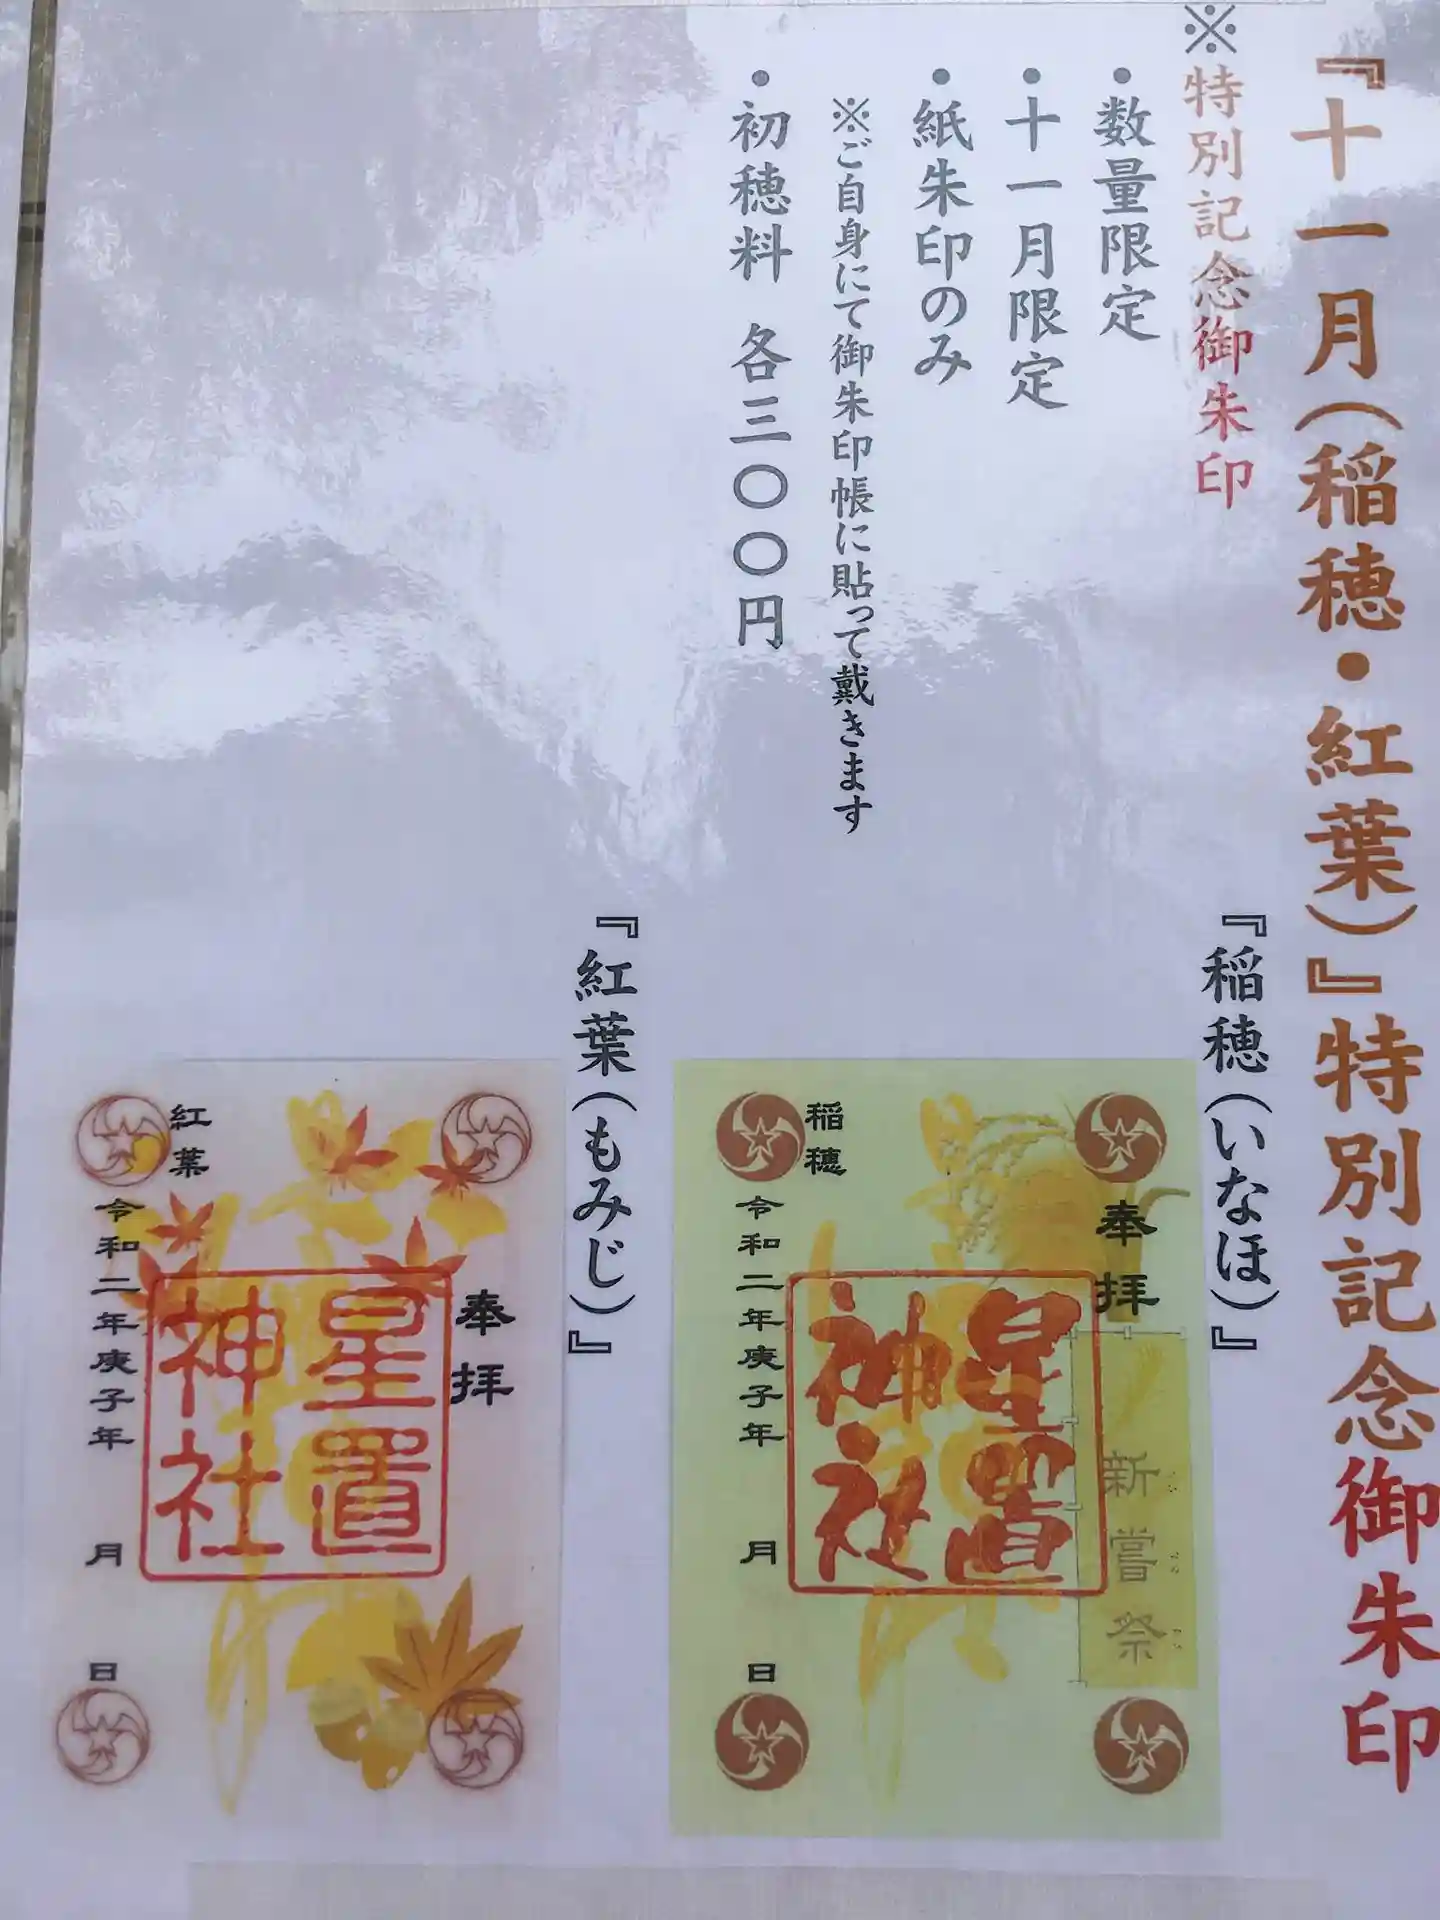 『十一月(稲穂・紅葉)』特別記念御朱印
※特別記念御朱印
・数量限定
・十一月限定
・紙朱印のみ
※ご自身にて御朱印帳に貼って戴きます
・初穂料 各三〇〇円
『稲穂(いなほ)』
奉拝
新嘗祭
星置
神社
稲穂
令和二年庚子年 月 日
『紅葉(もみじ)』
奉拝
星置
神社
紅葉
令和二年庚子年 月 日